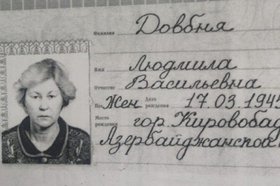 Фамилия Довбня
Имя Людмила
Отчество Васильевна
Пол Жен Дата рождения 17.03.194
Место рождения гор. Кировобад
Азербайджанской